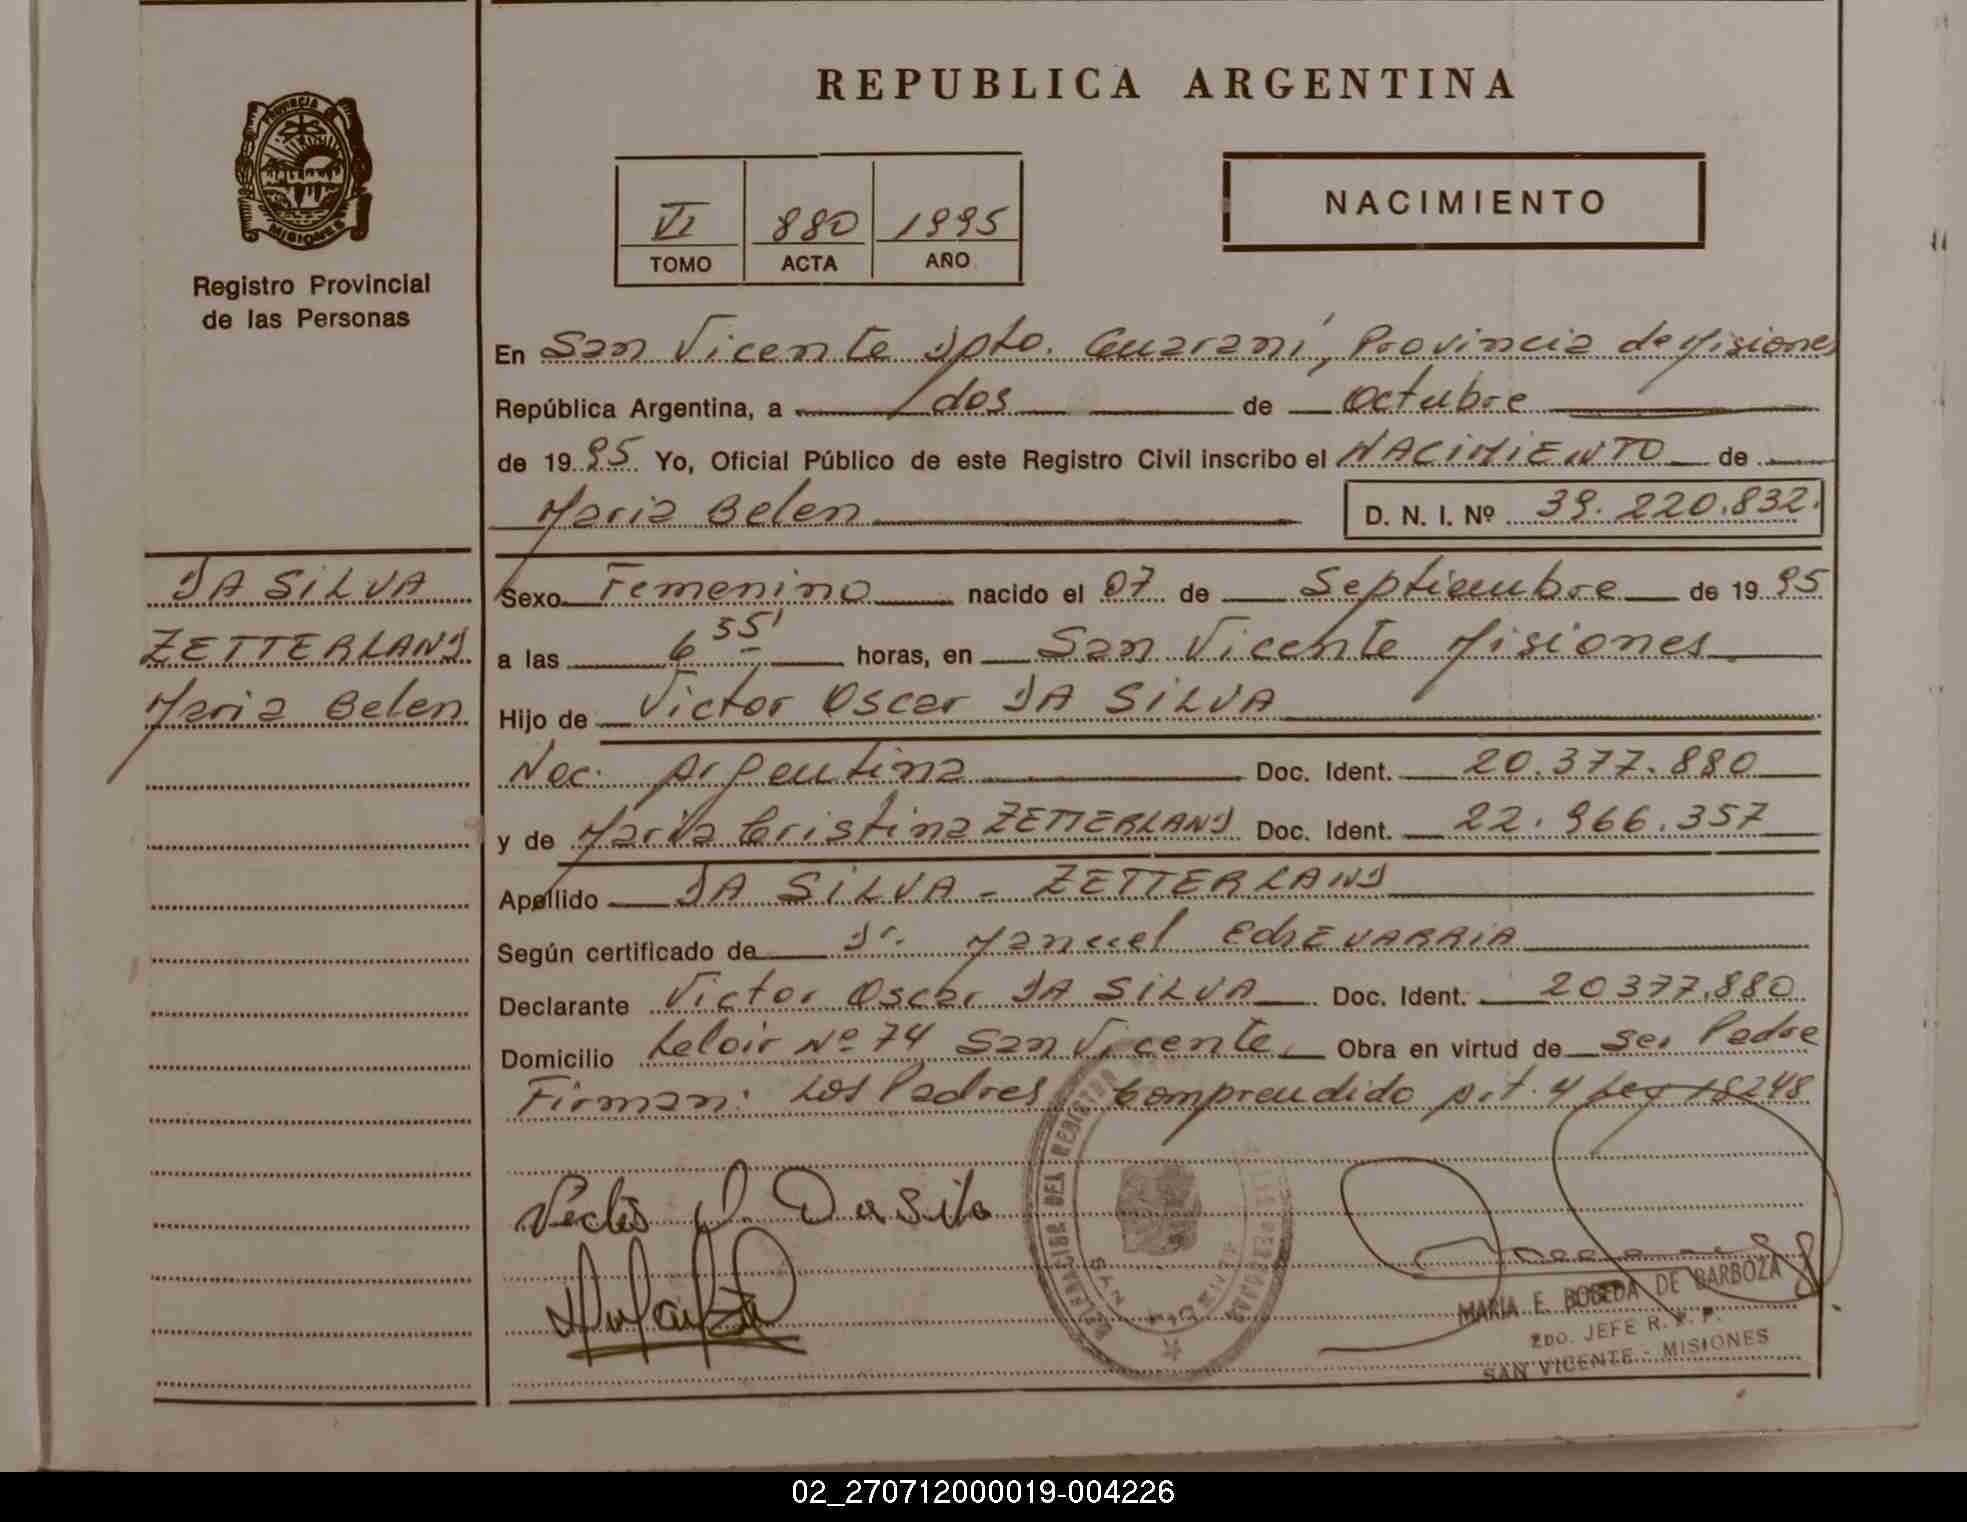 REPUBLICA ARGENTINA
PROVINCIA DE
MISIONES
Registro Provincial
de las Personas
VI 880 1995
TOMO ACTA AÑO
NACIMIENTO
En San Vicente Dpto. Guaraní, Provincia de Misiones
República Argentina, a dos de Octubre
de 1995 Yo, Oficial Público de este Registro Civil inscribo el NACIMIENTO de
Maria Belen D. N. I. Nº 39.220.832.
DA SILVA
ZETTERLAND
Maria Belen
Sexo Femenino nacido el 07 de Septiembre de 1995
a las 6 35' horas, en San Vicente Misiones
Hijo de Victor Oscar DA SILVA
Nac. Argentina Doc. Ident. 20.377.880
y de Maria Cristina ZETTERLAND Doc. Ident. 22.966.357
Apellido DA SILVA - ZETTERLAND
Según certificado de Dr. Manuel EchEVARRIA
Declarante Victor Oscar DA SILVA Doc. Ident. 20377.880
Domicilio Leloir Nº 74 San Vicente Obra en virtud de Ser Padre
Firman: Los Padres Comprendido Art. 4 Ley 18248
Da Silva
MARIA E. DE BARBOZA
2DO. JEFE R. P. P.
SAN VICENTE - MISIONES
02_270712000019-004226